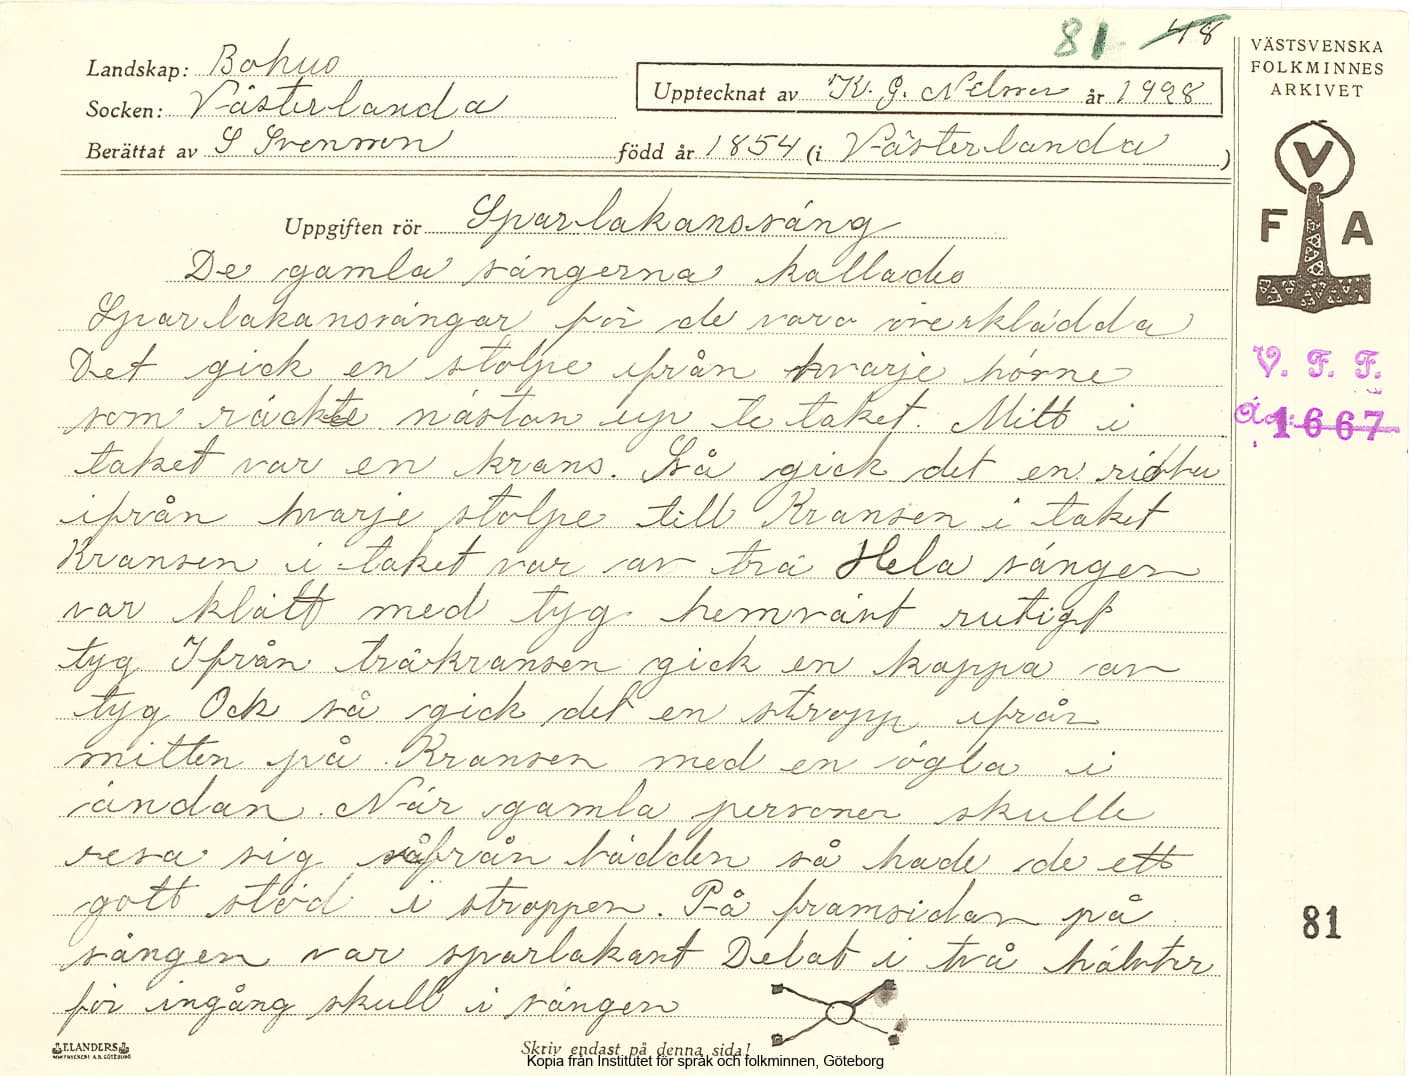 81 48
VÄSTSVENSKA
FOLKMINNES
ARKIVET
Landskap: Bohus
Upptecknat av K. G. år 1928
Socken: Västerlanda
Berättat av S Svenson född år 1854 (i Västerlanda)
V
F A
Uppgiften rör Sparlakanssäng
De gamla sängerna kallads
Sparlakanssängar för de vara överklädda
Det gick en stolpe ifrån hvarje hörne
som räckte nästan up te taket. Mitt i
taket var en krans. Så gick det en ribba
ifrån hvarje stolpe till Kransen i taket
Kransen i taket var av trä Hela sängen
var klätt med tyg hemvävt rutigt
tyg Ifrån träkransen gick en kappa av
tyg Ock så gick det en stropp ifrån
mitten på Kransen med en ögla i
ändan. När gamla personer skulle
resa sig ifrån bädden så hade de ett
gott stöd i stroppen. På framsidan på
sängen var sparlakant Delat i två hälvter
för ingång skull i sängen
V. F. F.
1667
81
ELANDERS
BOKTRYCKERI A.B. GÖTEBORG
Skriv endast på denna sida!
Kopia från Institutet för språk och folkminnen, Göteborg